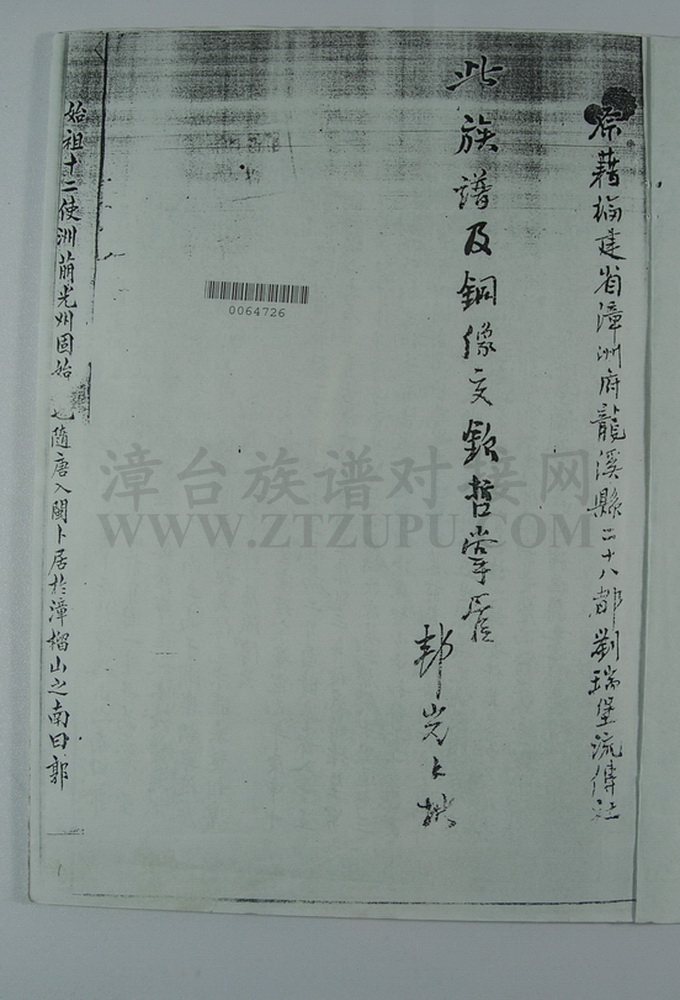 原藉福建省漳洲府龍溪縣二十八都劉瑞堡流傳社
此族譜及銅像交欽哲掌
始祖十二使洲萠光州固始 也隨唐入閩卜居於漳榴山之南曰郭
0064726
漳台族谱对接网
WWW.ZTZUPU.COM